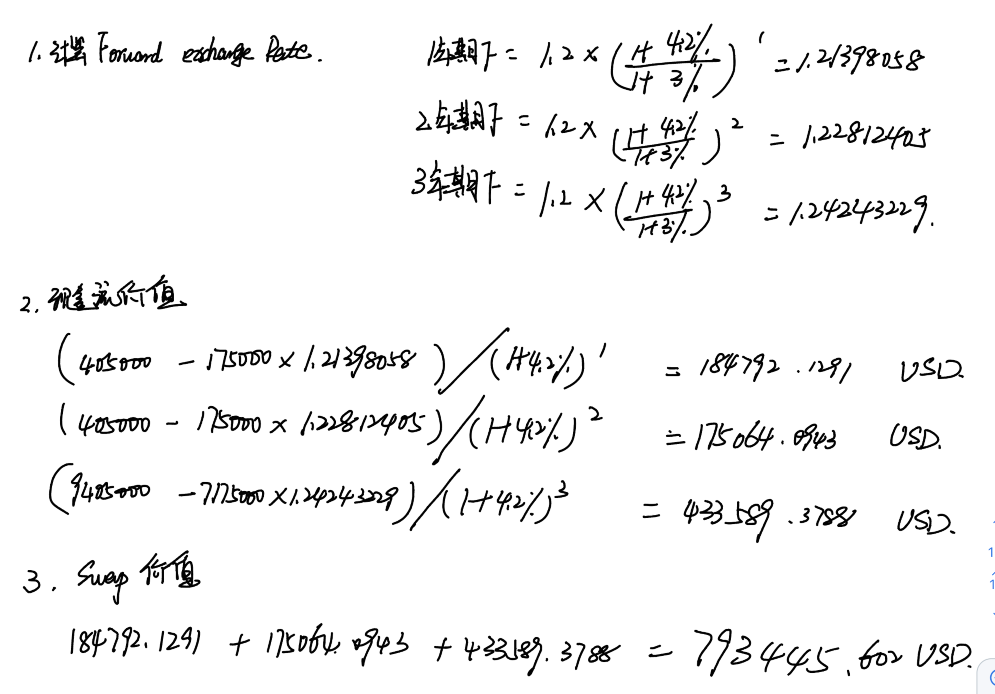 1. 计算 Forward exchange Rate.
1年期F = 1.2 × (1+4.2% / 1+3%)^1 = 1.21398058
2年期F = 1.2 × (1+4.2% / 1+3%)^2 = 1.22812405
3年期F = 1.2 × (1+4.2% / 1+3%)^3 = 1.242243229.
2. 现金流价值
(405000 - 175000 × 1.21398058) / (1+4.2%)^1 = 184792.1291 USD.
(405000 - 175000 × 1.22812405) / (1+4.2%)^2 = 175064.0943 USD.
(9405000 - 7175000 × 1.24243229) / (1+4.2%)^3 = 433589.3788 USD.
3. Swap 价值
184792.1291 + 175064.0943 + 433589.3788 = 793445.602 USD.